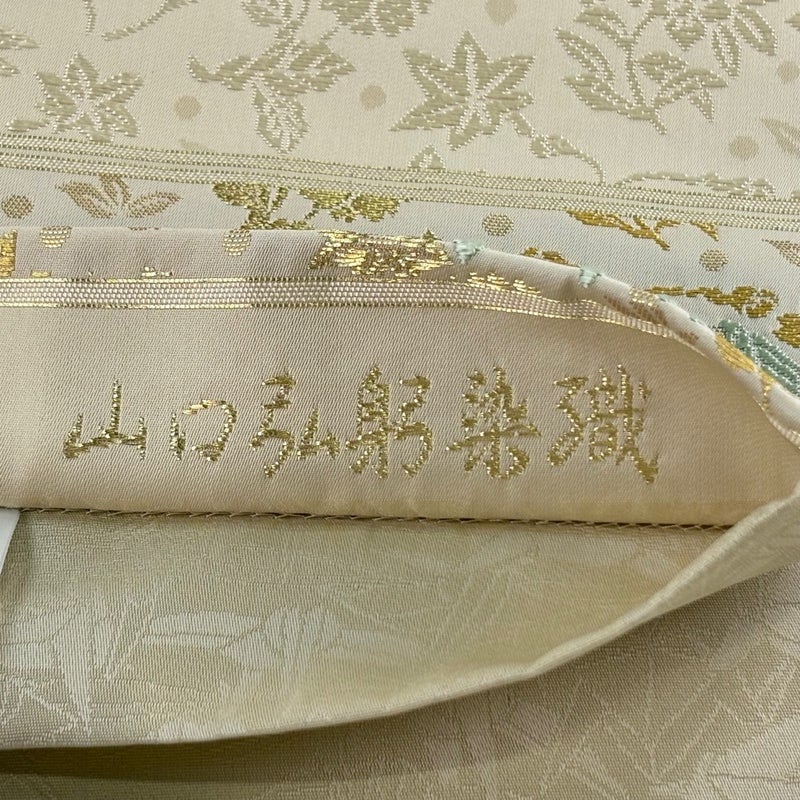 山口弘躬染織